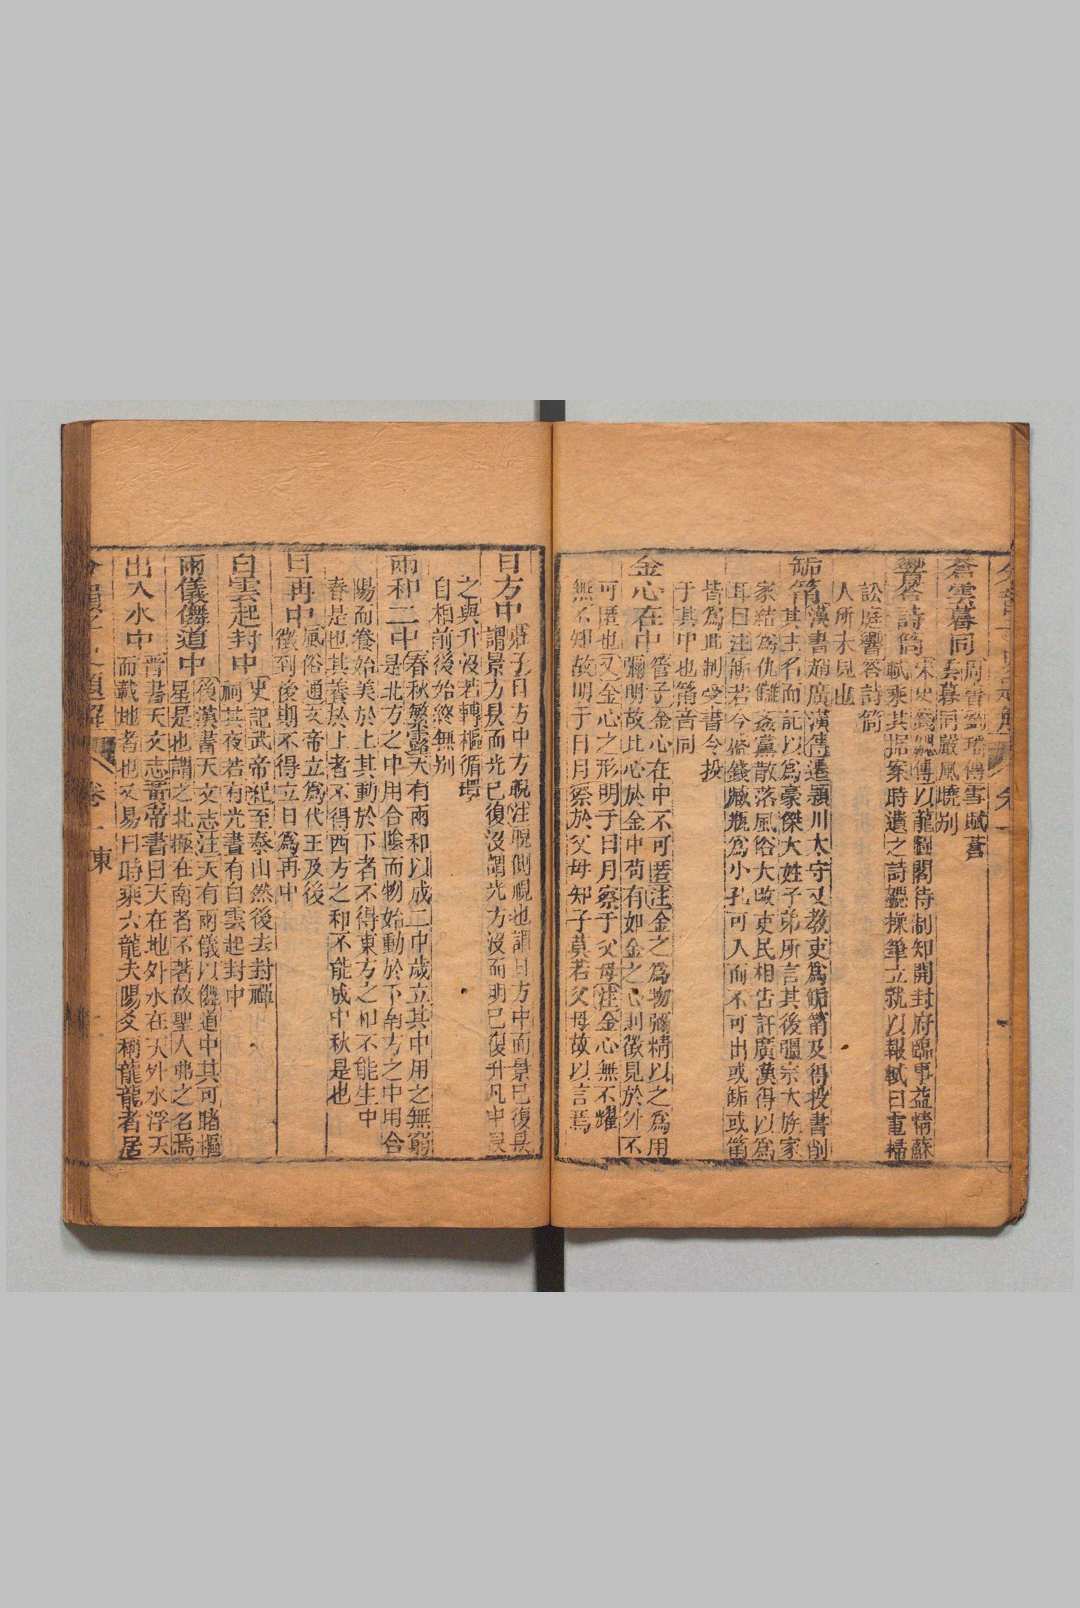 蒼雲暮同周書劉璠傳雪賦蒼
雲暮同嚴風曉別
響答詩筒宋史錢勰傳以龍圖閣待制知開封府臨事益精蘇
軾乘其据案時遺之詩勰操筆立就以報軾曰電掃
訟庭響答詩筒
人所未見也
缿筩漢書趙廣漢傳遷潁川太守又教吏為缿筩及得投書削
其主名而託以為豪傑大姓子弟所言其後彊宗大族家
家結為仇讎姦黨散落風俗大改吏民相告訐廣漢得以為
耳目注缿若今盛錢藏瓶為小孔可入而不可出或缿或筩
皆為此制受書令投
于其中也筩音同
金心在中管子金心在中不可匿注金之為物彌精以之為用
彌明故此心於金中苟有如金之心則徵見於外不
可匿也又金心之形明于日月察于父母注金心無不耀
無不知故明于日月察於父母知子莫若父母故以言焉
日方中莊子日方中方睨注睨側視也謂日方中而景已復昃
謂景方昃而光已復沒謂光方沒而明已復升凡中昃
之與升沒若轉樞循環
自相前後始終無別
兩和二中春秋繁露天有兩和以成二中歲立其中用之無窮
是北方之中用合陰而物始動於下南方之中用合
陽而養始美於上其動於下者不得東方之和不能生中
春是也其養於上者不得西方之和不能成中秋是也
日再中風俗通文帝立為代王及後
徵到後期不得立日為再中
白雲起封中史記武帝紀至泰山然後去封禪
祠其夜若有光晝有白雲起封中
兩儀儛道中後漢書天文志注天有兩儀以儛道中其可睹樞
星是也謂之北極在南者不著故聖人弗之名焉
出入水中晉書天文志黃帝書曰天在地外水在天外水浮天
而載地者也又易曰時乘六龍夫陽爻稱龍龍者居
卷一東